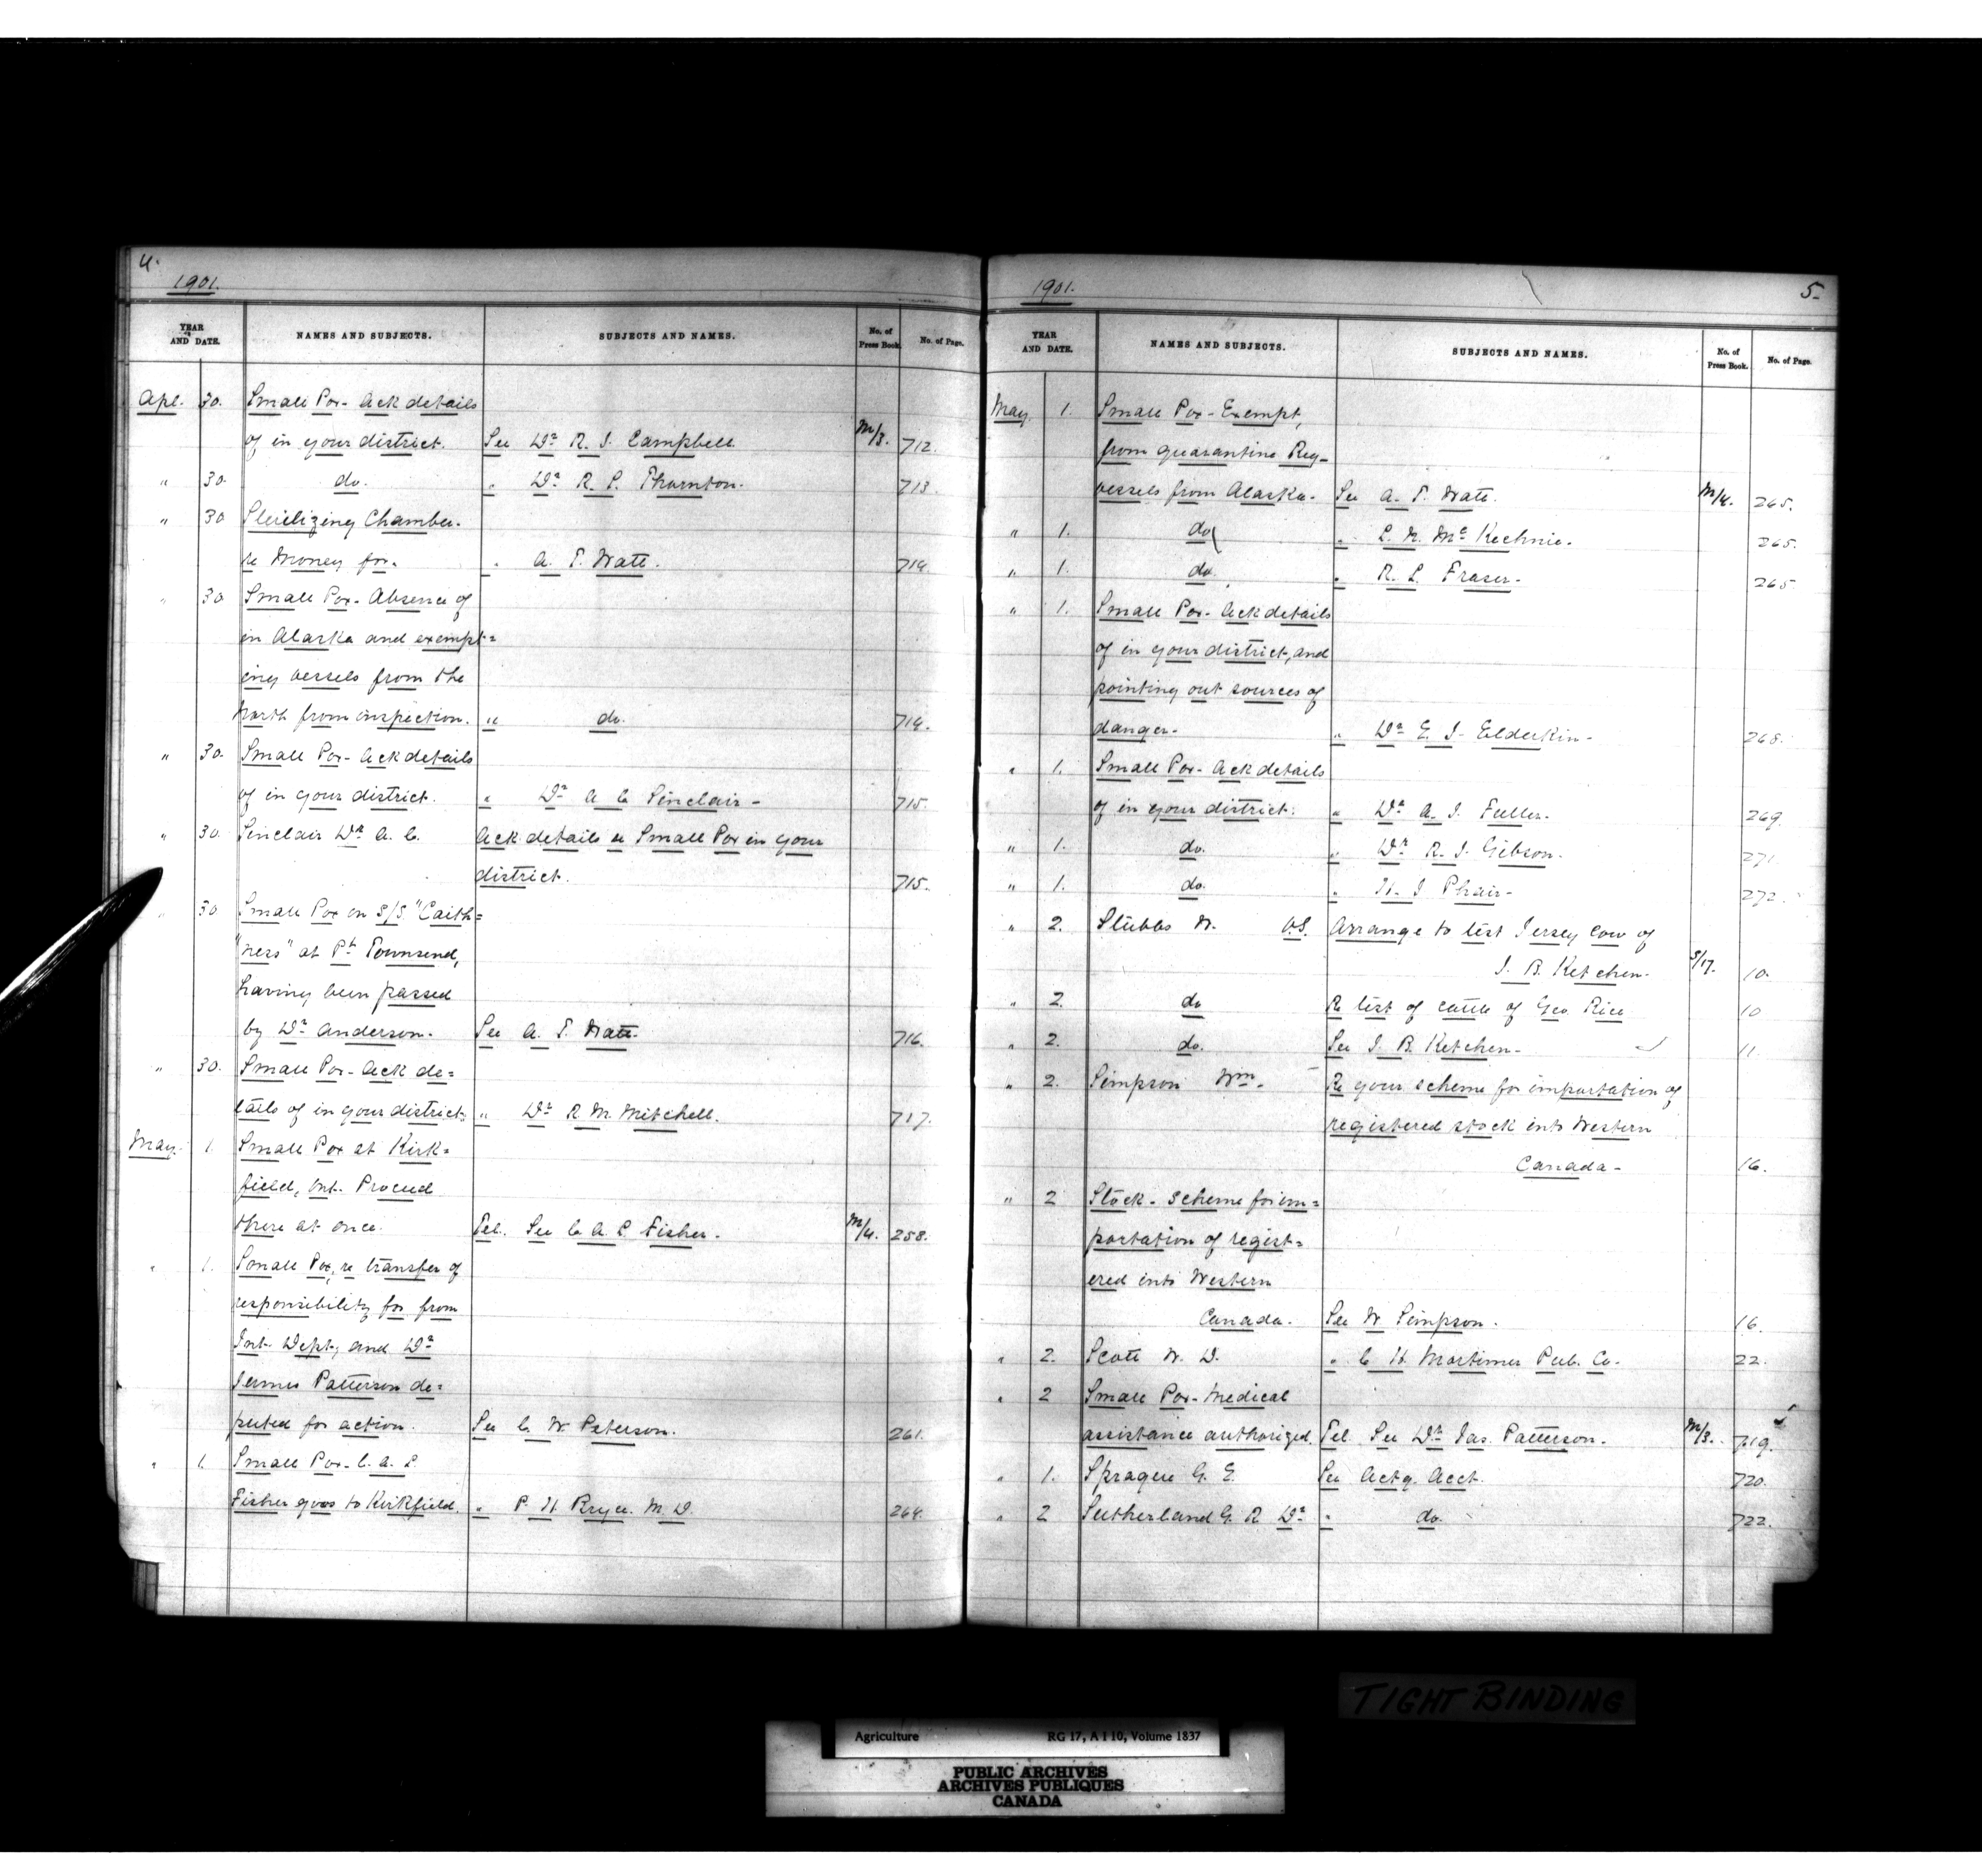 4.
1901.
YEAR AND DATE. NAMES AND SUBJECTS. SUBJECTS AND NAMES. No. of Press Book. No. of Page.
Apl. 30. Small Pox - Ack details
of in your district. See Dr R. J. Campbell. M/3. 712.
" 30. do. " Dr R. S. Thornton. 713.
" 30 Sterilizing Chamber.
re Money for. " A. T. Watt. 714.
" 30 Small Pox - Absence of
in Alaska and exempt=
ing vessels from the
North from inspection. " do. 714.
" 30. Small Pox - Ack details
of in your district. " Dr A C Sinclair - 715.
" 30. Sinclair Dr A. C. Ack details re Small Pox in your
district. 715.
" 30 Small Pox on S/S. "Caith=
"ness" at Pt Townsend,
having been passed
by Dr Anderson. See A. T. Watt. 716.
" 30. Small Pox - Ack de=
tails of in your district. " Dr R. M. Mitchell. 717.
May. 1. Small Pox at Kirk=
field, Ont. Proceed
there at once. Tel. See C. A. L. Fisher. M/4. 258.
" 1. Small Pox, re transfer of
responsibility for from
Int. Dept, and Dr
James Patterson de=
puted for action. See C. W. Peterson. 261.
" 1. Small Pox - C. A. L.
Fisher goes to Kirkfield. " P. H. Bryce. M. D. 264.
1901. 5.
YEAR AND DATE. NAMES AND SUBJECTS. SUBJECTS AND NAMES. No. of Press Book. No. of Page.
May 1. Small Pox - Exempt,
from quarantine Reg-
vessels from Alaska. See A. T. Watt. M/4. 265.
" 1. do " L. N. McKechnie. 265.
" 1. do. " R. L. Fraser - 265
" 1. Small Pox - Ack details
of in your district, and
pointing out sources of
danger - " Dr E. J. Elderkin - 268.
" 1. Small Pox - Ack details
of in your district. " Dr A. J. Fuller. 269.
" 1. do. " Dr R. J. Gibson. 271.
" 1. do. " H. J Phair - 272.
" 2. Stubbs W. V.S. Arrange to test Jersey Cow of
J. B. Ketchen. S/17. 10.
" 2. do Re test of cattle of Geo. Rice 10
" 2. do. See J. B. Ketchen - 11.
" 2. Simpson Wm. Re your scheme for importation of
registered stock into Western
Canada - 16.
" 2 Stock - Scheme for im=
portation of regist=
ered into Western
Canada. See W Simpson. 16.
" 2. Scott W. D. " C H. Mortimer Pub. Co. 22.
" 2 Small Pox - Medical
assistance authorized. Tel. See Dr Jas. Patterson. M/3. 719.
" 1. Sprague G. E. See Actg. Acct. 720.
" 2 Sutherland G. R Dr " do. 722.
TIGHT BINDING
Agriculture RG 17, A I 10, Volume 1837
PUBLIC ARCHIVES
ARCHIVES PUBLIQUES
CANADA